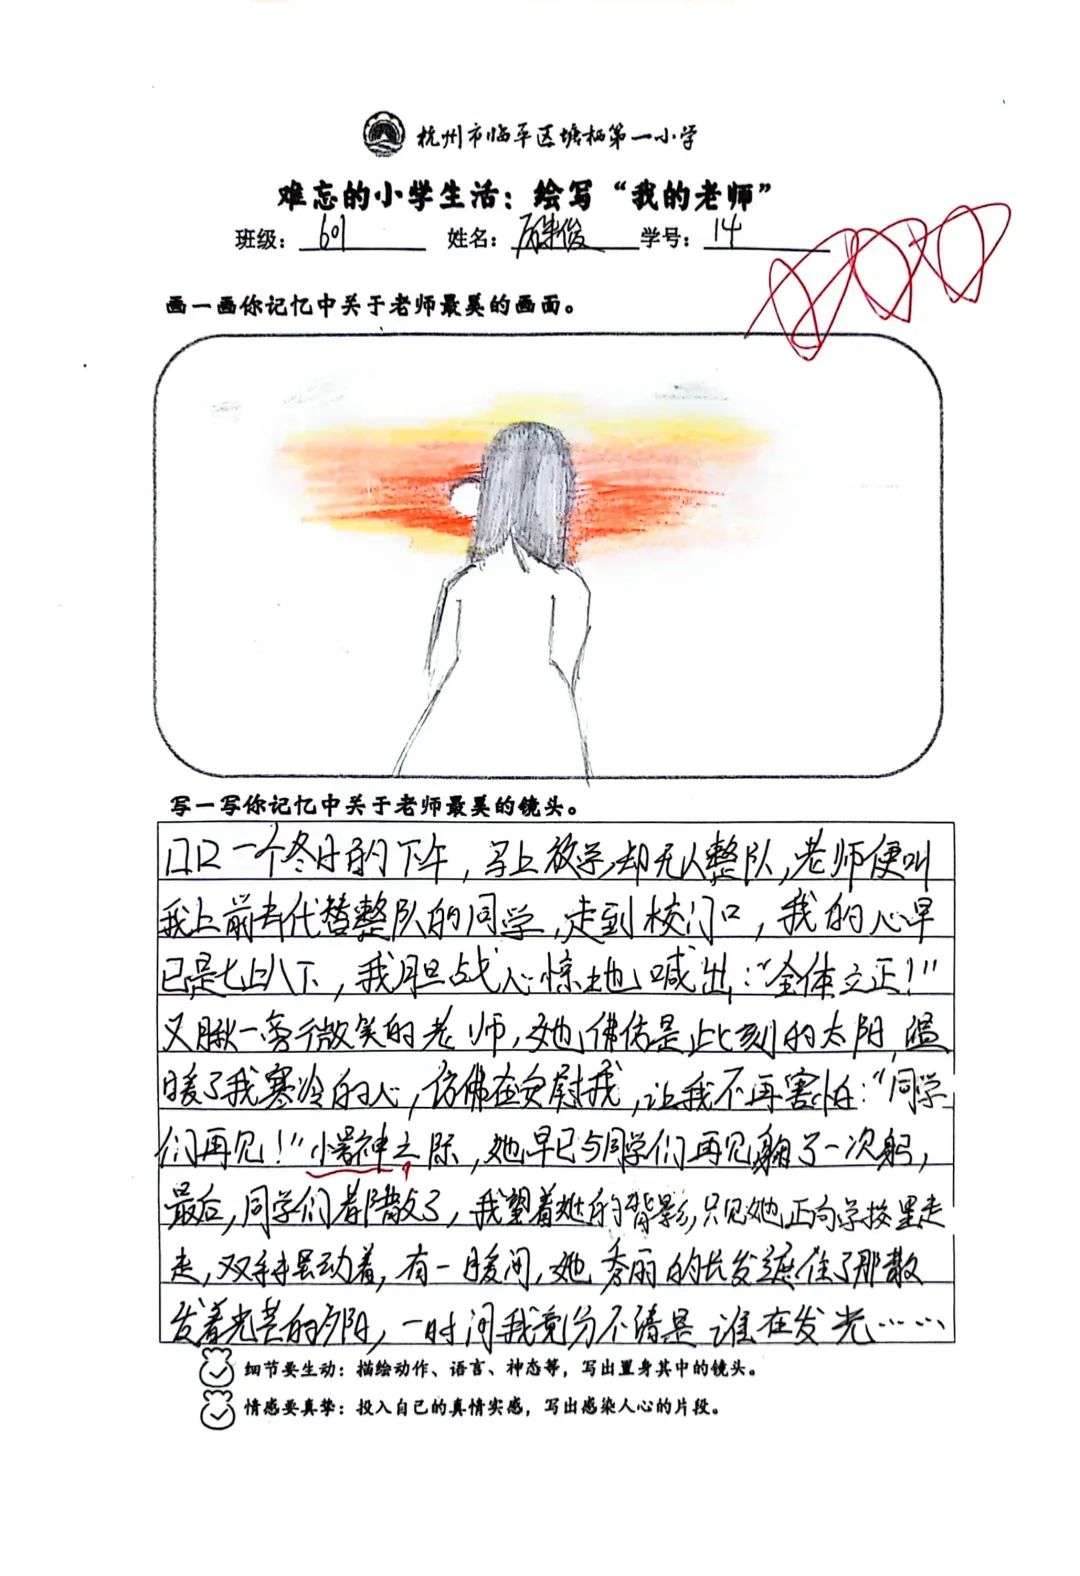 杭州市临平区塘栖第一小学
难忘的小学生活：绘写“我的老师”
班级：601 姓名：俊 学号：14
画一画你记忆中关于老师最美的画面。
写一写你记忆中关于老师最美的镜头。
一个冬日的下午，马上放学，却无人整队，老师便叫
我上前去代替整队的同学，走到校门口，我的心早
已是七上八下，我胆战心惊地喊出：“全体立正！”
又瞅一旁微笑的老师，她仿佛是此刻的太阳，温
暖了我寒冷的心，仿佛在安慰我，让我不再害怕：“同学
们再见！”愣神之际，她早已与同学们再见鞠了一次躬，
最后，同学们都散了，我望着她的背影，只见她正向学校里走
去，双手摆动着，有一瞬间，她秀丽的长发遮住了那散
发着光芒的夕阳，一时间我竟分不清是谁在发光……
细节要生动：描绘动作、语言、神态等，写出置身其中的镜头。
情感要真挚：投入自己的真情实感，写出感染人心的片段。